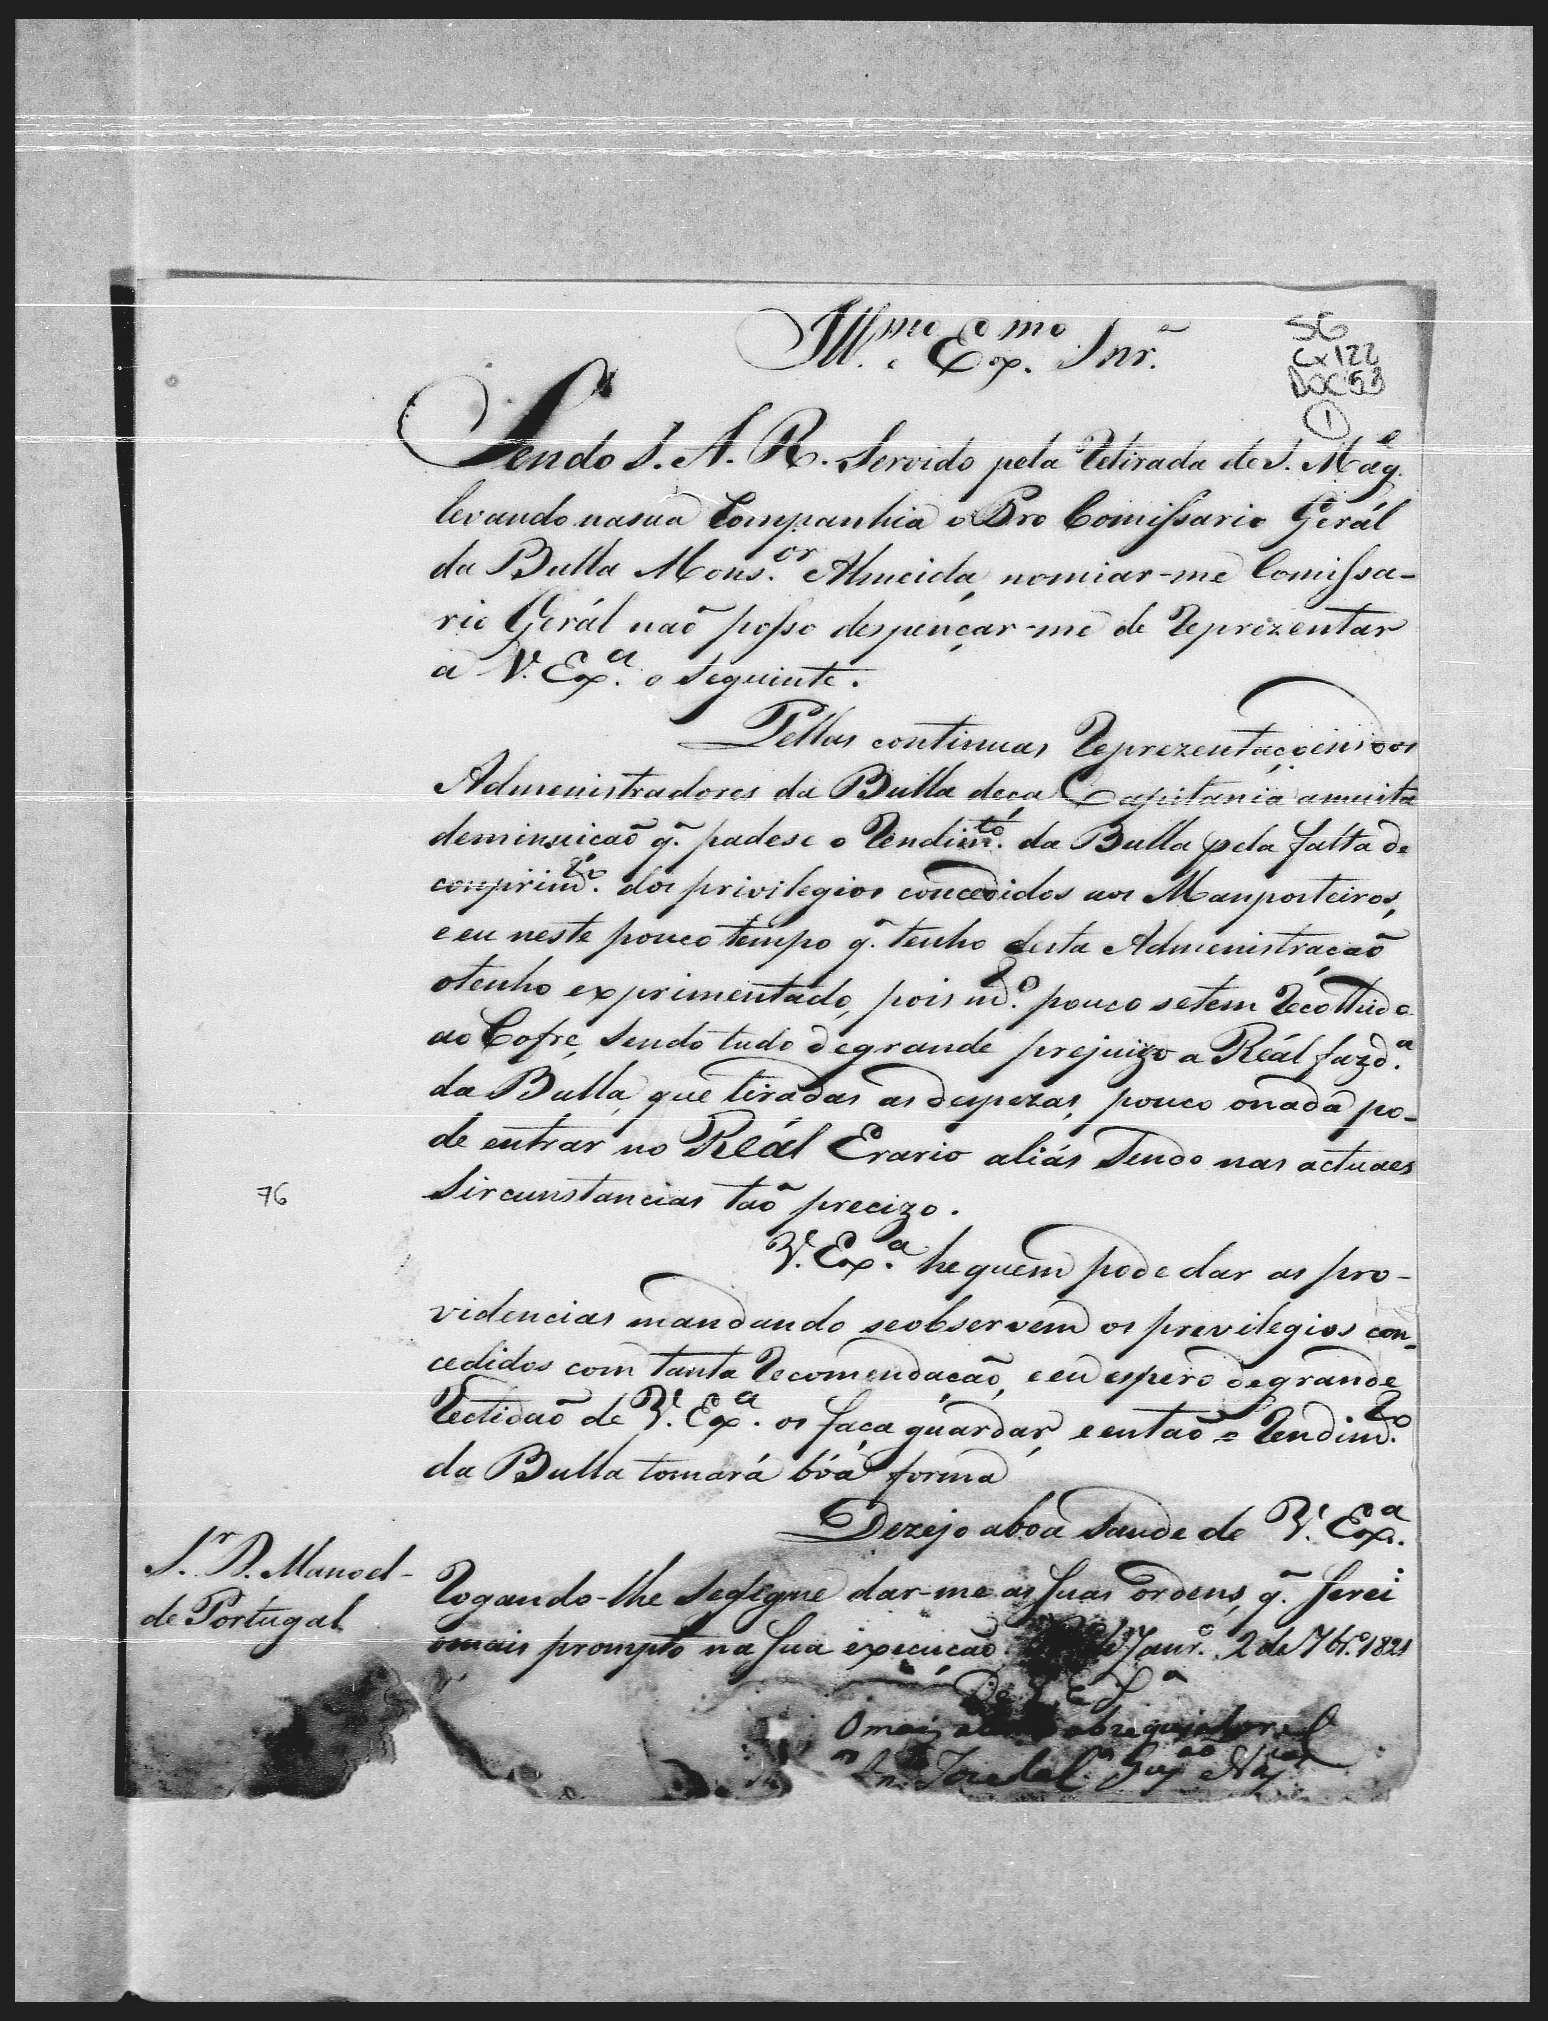 Ill.mo e Ex.mo Snr.
SG
Cx 122
DOC 53
1
Sendo S. A. R. servido pela Retirada de S. Mag.e
levando nasua Companhia o Pro Comissario Gerál
da Bulla Mons.or Almeida, nomiar-me Comissa-
rio Gerál naõ posso despençar-me de Reprezentar
a V. Ex.a o seguinte.
Pellas continuas Reprezentaçoins dos
Admenistradores da Bulla deça Capitania amuita
deminuicaõ q. padese o Rendim.to da Bulla pela falta de
conprim.to dos privilegios concedidos aos Manposteiros,
e eu neste pouco tempo q. tenho desta Admenistraçaõ
otenho exprimentado, pois m.to pouco setem Recolhido
ao Cofre, sendo tudo degrande prejuizo a Reál fazd.a
da Bulla, que tiradas as despezas, pouco onada po-
de entrar no Reál Erario aliás sendo nas actuaes
Sircunstancias taõ precizo.
76
V. Ex.a he quem pode dar as pro-
videncias mandando seobservem os previlegios con-
cedidos com tanta Recomendaçaõ, e eu espero degrande
Rectidaõ de V. Ex.a os faça guardar, e entaõ o Rendim.to
da Bulla tomará bôa forma
Dezejo aboa Saude de V. Ex.a
Rogando-lhe sedigne dar-me as suas ordens, q. serei
omais prompto na sua execuçaõ Janr.o 2 de 7br.o 1821
S.r D. Manoel
de Portugal
De V. E S.a
O mais obzequiador